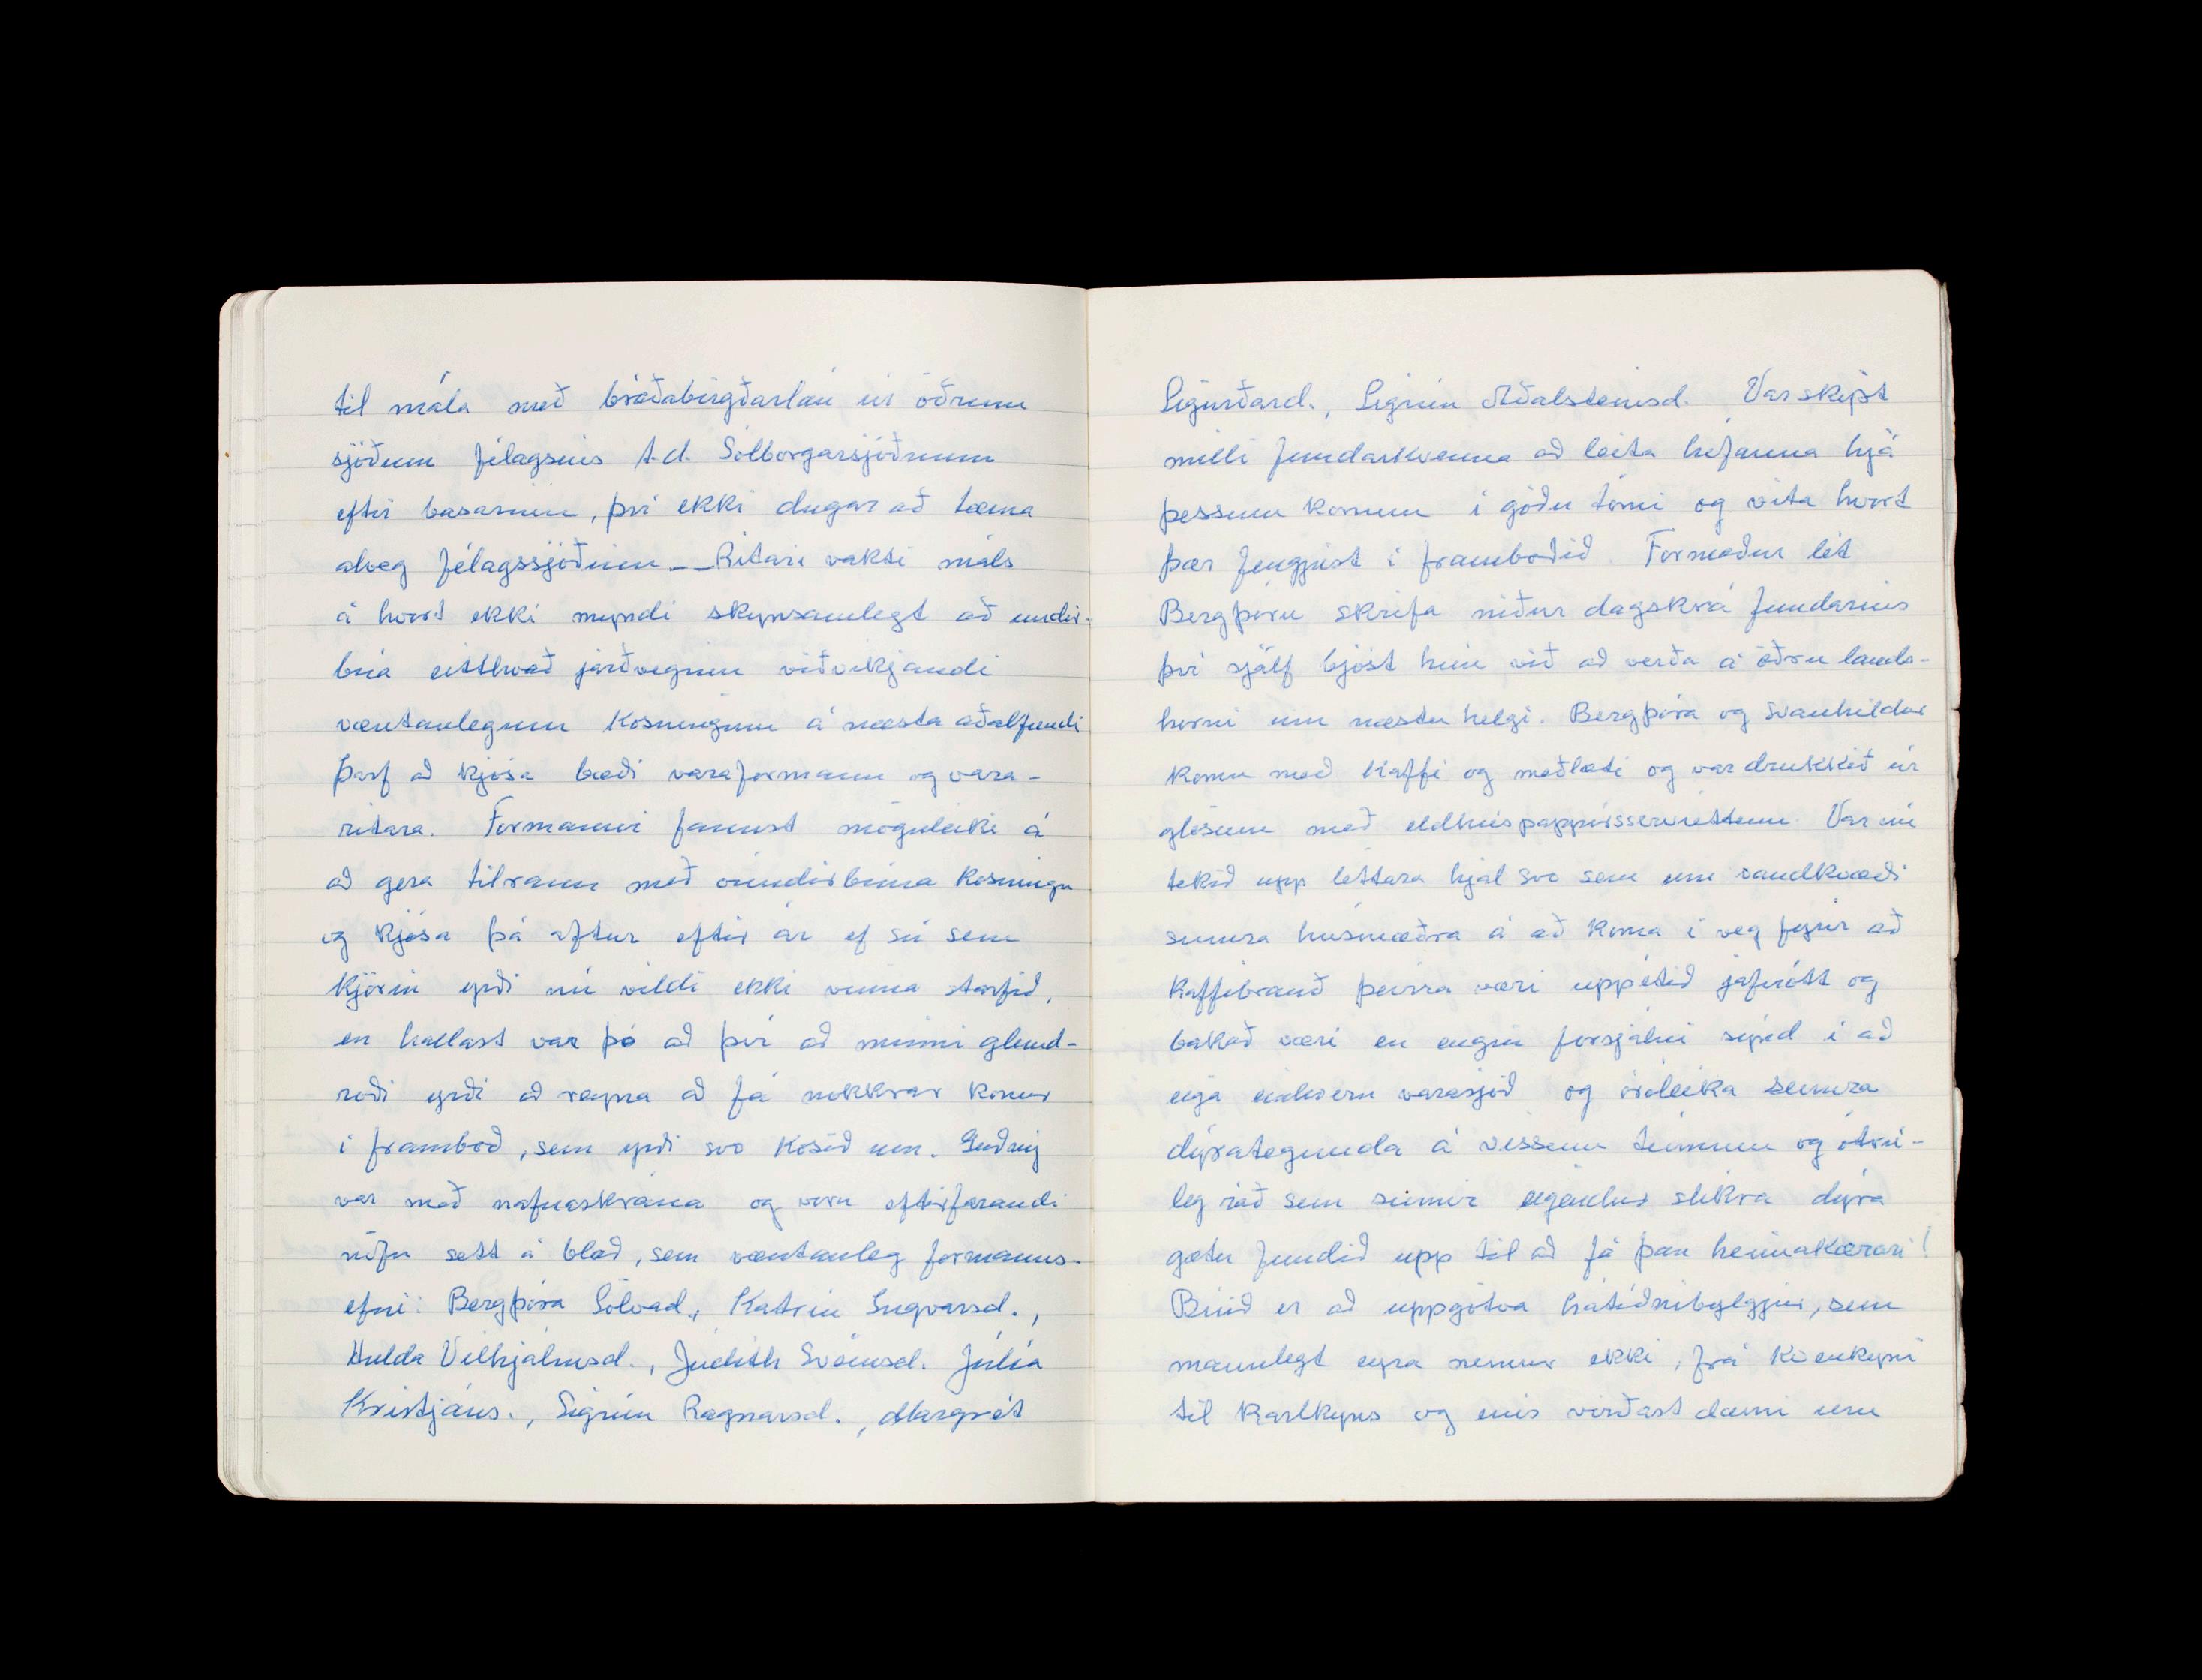 til mála með bráðabirgðarlán úr öðrum
sjóðum félagsins t.d. Sólborgarsjóðnum
eftir basarinn, því ekki dugar að tæma
alveg félagssjóðinn__Ritari vakti máls
á hvort ekki myndi skynsamlegt að undir-
búa eitthvað jarðveginn viðvíkjandi
væntanlegum kosningum á næsta aðalfundi
Þarf að kjósa bæði varaformann og vara-
ritara. Formanni fannst möguleiki á
að gera tilraun með óundirbúna kosningu
og kjósa þá aftur eftir ár ef sú sem
kjörin yrði nú vildi ekki vinna starfið,
en hallast var þó að því að minni glund-
roði yrði að reyna að fá nokkrar konur
í framboð, sem yrði svo kosið um. Guðný
var með nafnaskrána og voru eftirfarandi
nöfn sett á blað, sem væntanleg formanns-
efni: Bergþóra Sölvad., Katrín Ingvarsd.,
Hulda Vilhjálmsd., Judith Sveinsd. Júlía
Kristjáns., Sigrún Ragnarsd., Margrét
Sigurðard., Sigrún Aðalsteinsd. Var skipt
milli fundarkvenna að leita hófanna hjá
þessum konum í góðu tómi og vita hvort
þær fengjust í framboðið. Formaður lét
Bergþóru skrifa niður dagskrá fundarins
því sjálf bjóst hún við að verða á öðru lands-
horni um næstu helgi. Bergþóra og Svanhildur
komu með kaffi og meðlæti og var drukkið úr
glösum með eldhúspappírsservéttum. Var nú
tekið upp léttara hjal svo sem um vandkvæði
sumra húsmæðra á að koma í veg fyrir að
kaffibrauð þeirra væri uppétið jafnótt og
bakað væri en engin forsjálni sýnd í að
eiga einhvern varasjóð og óróleika sumra
dýrategunda á vissum tímum og ótrú-
leg ráð sem sumir eigendur slíkra dýra
gætu fundið upp til að fá þau heimakærari!
Búið er að uppgötva hátíðnibylgjur, sem
mannlegt eyra nemur ekki, frá kvenkyni
til karlkyns og eins virðast dæmi um